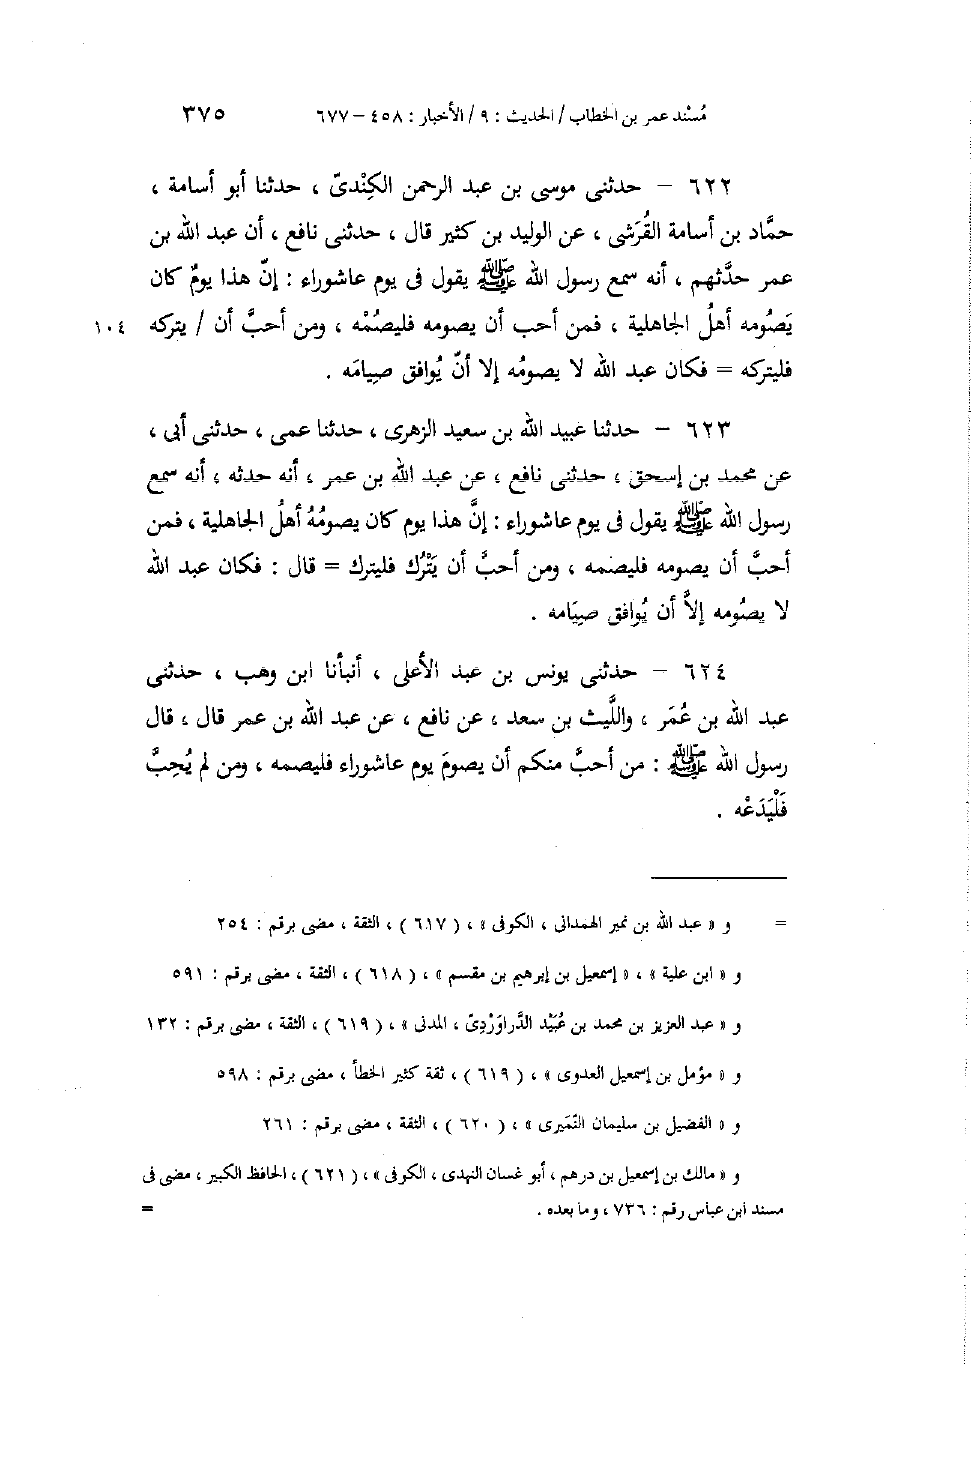 مُسْند عمر بن الخطاب / الحديث : ٩ / الأخبار : ٤٥٨ – ٦٧٧ ٣٧٥
٦٢٢ – حدثنى موسى بن عبد الرحمن الكِنْدىّ ، حدثنا أبو أسامة ،
حمَّاد بن أسامة القُرَشى ، عن الوليد بن كثير قال ، حدثنى نافع ، أن عبد الله بن
عمر حدَّثهم ، أنه سمع رسول الله ﷺ يقول فى يوم عاشوراء : إنّ هذا يومٌ كان
يَصُومه أهلُ الجاهلية ، فمن أحب أن يصومه فليصُمْه ، ومن أحبَّ أن / يتركه ١٠٤
فليتركه = فكان عبد الله لا يصومُه إلا أنّ يُوافق صِيامَه .
٦٢٣ – حدثنا عبيد الله بن سعيد الزهرى ، حدثنا عمى ، حدثنى أبى ،
عن محمد بن إسحق ، حدثنى نافع ، عن عبد الله بن عمر ، أنه حدثه ، أنه سمع
رسول الله ﷺ يقول فى يوم عاشوراء : إنَّ هذا يوم كان يصومُهُ أهلُ الجاهلية ، فمن
أحبَّ أن يصومه فليصمه ، ومن أحبَّ أن يَتْرُك فليترك = قال : فكان عبد الله
لا يصُومه إلاَّ أن يُوافق صِيَامه .
٦٢٤ – حدثنى يونس بن عبد الأعلى ، أنبأنا ابن وهب ، حدثنى
عبد الله بن عُمَر ، واللَّيث بن سعد ، عن نافع ، عن عبد الله بن عمر قال ، قال
رسول الله ﷺ : من أحبَّ منكم أن يصومَ يوم عاشوراء فليصمه ، ومن لم يُحِبَّ
فَلْيَدَعْه .
= و « عبد الله بن نمير الهمدانى ، الكوفى » ، ( ٦١٧ ) ، الثقة ، مضى برقم : ٢٥٤
و « ابن علية » ، « إسمعيل بن إبرهيم بن مقسم » ، ( ٦١٨ ) ، الثقة ، مضى برقم : ٥٩١
و « عبد العزيز بن محمد بن عُبَيْد الدَّراوَرْدِىّ ، المدنى » ، ( ٦١٩ ) ، الثقة ، مضى برقم : ١٣٢
و « مؤمل بن إسمعيل العدوى » ، ( ٦١٩ ) ، ثقة كثير الخطأ ، مضى برقم : ٥٩٨
و « الفضيل بن سليمان النُّمَيرى » ، ( ٦٢٠ ) ، الثقة ، مضى برقم : ٢٦١
و « مالك بن إسمعيل بن درهم ، أبو غسان النهدى ، الكوفى » ، ( ٦٢١ ) ، الحافظ الكبير ، مضى فى
مسند ابن عباس رقم : ٧٣٦ ، وما بعده . =